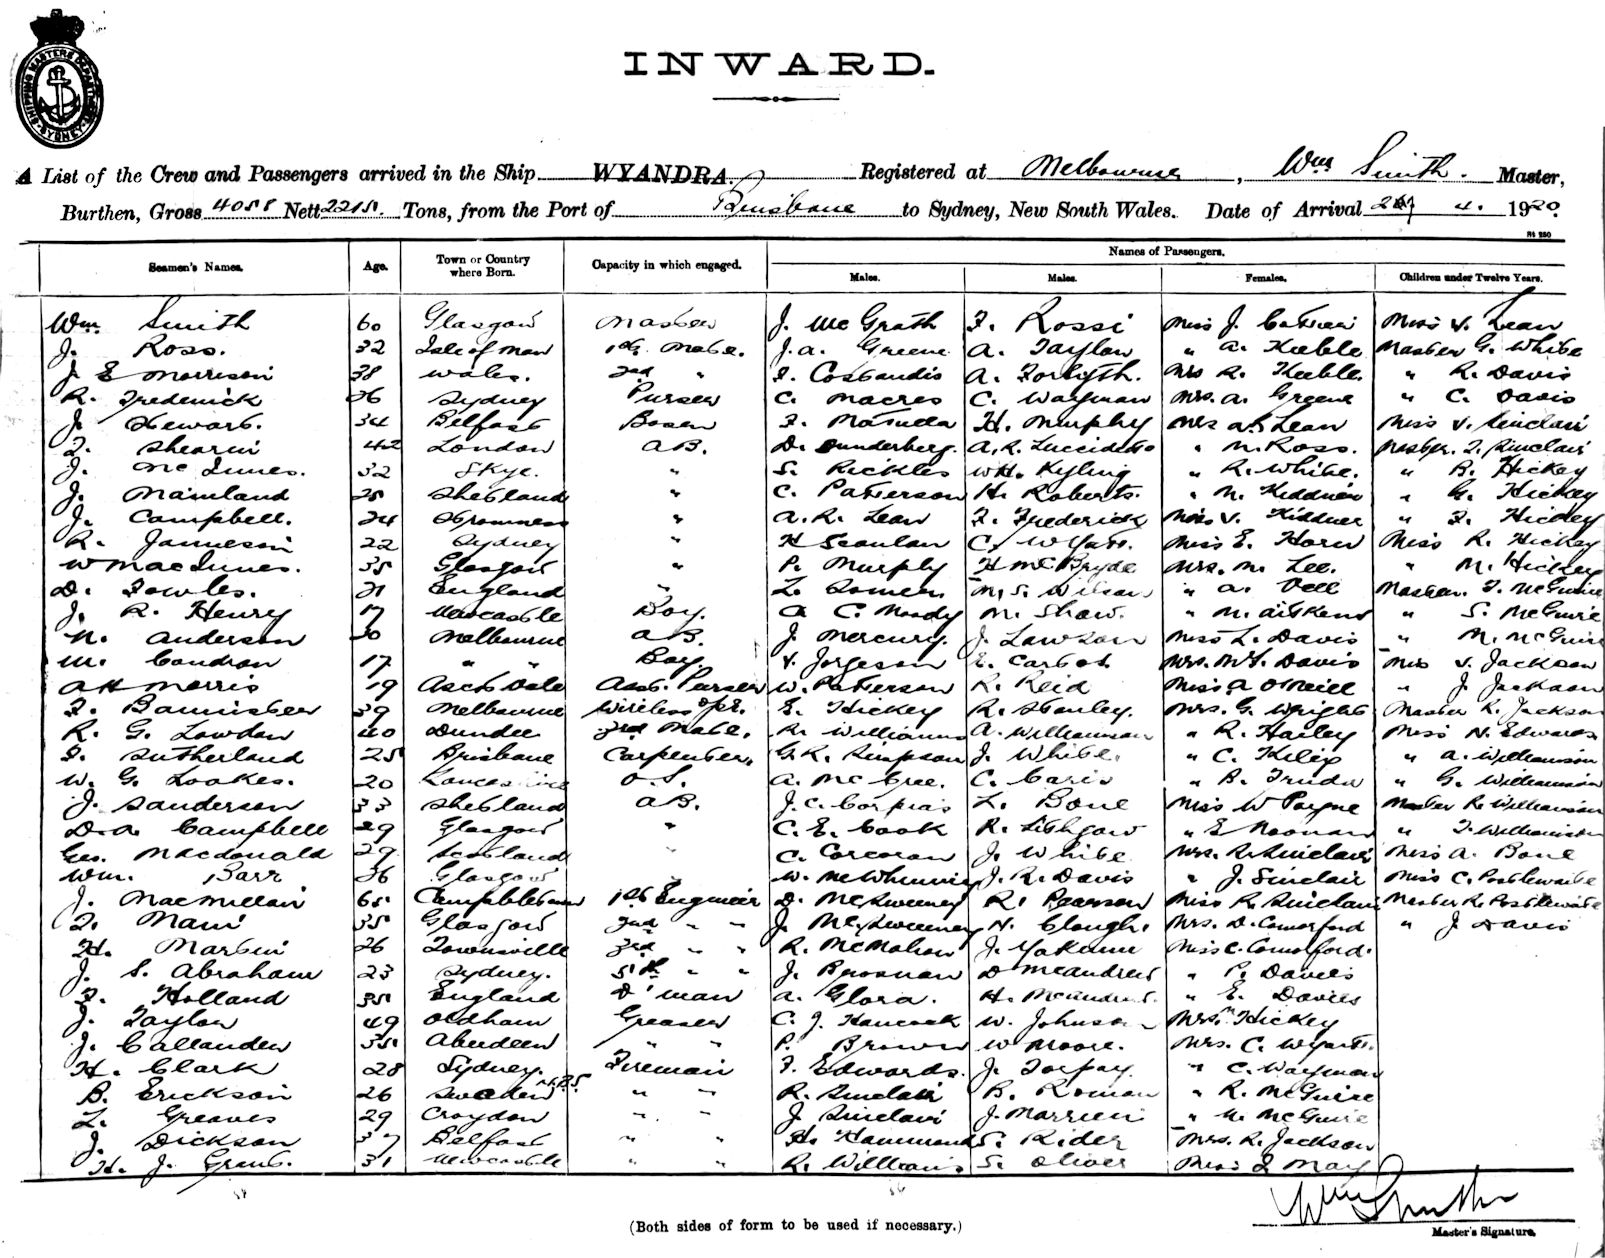 SHIPPING MASTERS DEPARTMENT SYDNEY
INWARD.
A List of the Crew and Passengers arrived in the Ship WYANDRA. Registered at Melbourne, Wm Smith. Master,
Burthen, Gross 4058 Nett 2215. Tons, from the Port of Brisbane to Sydney, New South Wales. Date of Arrival 4. 1920
Names of Passengers.
Seamen's Names. Age. Town or Country where Born. Capacity in which engaged. Males. Males. Females. Children under Twelve Years.
Wm Smith 60 Glasgow Master J. McGrath F. Rossi Miss J. Miss V. Lean
J. Ross. 32 Isle of Man 1st Mate. J. A. Greene A. Taylor " A. Keeble Master G. White
J E Morrison 38 Wales. 2nd " A. Forsyth. Mrs R. Keeble. " R. Davis
R. Frederick 36 Sydney Purser C. Macres C. Wayman Mrs. A. Greene " C. Davis
J. Stewart. 34 Belfast Bosen F. H. Murphy Mrs A. S. Lean Miss V. Sinclair
T. Shearin 42 London A.B. D. Dunderberg. A. R. " M. Ross. Master. T. Sinclair
J. McInnes. 32 Skye. " S. Rickles W H. Kyling " R. White. " R. Hickey
J. Mainland 25 Shetland " C. Patterson H. Roberts. " N. " G. Hickey
J. Campbell. 24 Stromness " A. R. Lean F. Frederick Miss V. " F. Hickey
R. Jamieson 22 Sydney " H Scanlan C. Wyatt. Miss E. Horn Miss R. Hickey
W MacInnes. 35 Glasgow " P. Murphy H McBryde Mrs. M. Lee. " M. Hickey
D. Fowles. 31 England " L. M. S. Wilson " A. Dell Master. F. McGuire
J. R. Henry 17 Newcastle Boy. A C. Moody M. Shaw. " M. Aitkens " S. McGuire
N. Anderson 30 Melbourne A.B. J. Mercury. J. Lawson Miss L. Davis " M. McGuire
M. Condron 17 " " Boy. V. Jorgeson E. Carbot Mrs. M. Davis Miss V. Jackson
A H Morris 19 Ascot Vale Asst. Purser W. Patterson R. Reid Miss A O'Neill " J. Jackson
F. Bannister 39 Melbourne Wireless Opr. E. Hickey R. Stanley. Mrs. G. Wright Master R. Jackson
R. G. Lowdon 40 Dundee 3rd Mate. R. Williams A. Williamson " R. Hailey Miss N. Edwards
F. Sutherland 25 Brisbane Carpenter. G. R. Simpson J. White. " C. " A. Williamson
W. G. Lookes. 20 Lancashire O.S. A. McCree. C. " B. " G. Williamson
J. Sanderson 33 Shetland A.B. J. C. L. Bone Miss W Payne Master R. Williamson
D. A. Campbell 29 Glasgow " C. E. Cook R. Lithgow " E Noonan " F. Williamson
Geo. Macdonald 29 Scotland C. Corcoran J. White Mrs. R. Sinclair Miss A. Bone
Wm. Barr 36 Glasgow W. McWhinnie J. R. Davis " J. Sinclair Miss C. Postlewaite
J. Macmillan 65 Campbletown 1st Engineer D. McSweeney R. Pearson Miss R. Sinclair Master R. Postlewaite
T. Mann 35 Glasgow 2nd " " J. McSweeney N. Clough. Mrs. D. Comerford " J. Davis
H. Martin 26 Townsville 3rd " " R. McMahon J. Miss C. Comerford.
J. S. Abraham 23 Sydney. 5th " " J. Brosnan D McAndrew " P. Davies
F. Holland 35 England D'man A. Glora. H. McAndrew. " E. Davies
J. Taylor 49 Oldham Greaser C. J. Hancock W. Johnson Mrs. Hickey
J. Callander 35 Aberdeen " " P. Brown W Moore. Mrs. C. Wyatt.
H. Clark 28 Sydney. Fireman F. Edwards. J. Torpay. " C. Wayman
B. Erickson 26 Sweden " " R. Sinclair B. Roman " R. McGuire
L. Greaves 29 Croydon " " J. Sinclair J. " M. McGuire
J. Dickson 37 Belfast " " H. Hammond S. Rider Mrs. R. Jackson
H. J. Grant. 31 Newcastle " " R. Williams S. Oliver Miss I May
(Both sides of form to be used if necessary.)
Wm Smith
Master's Signature.